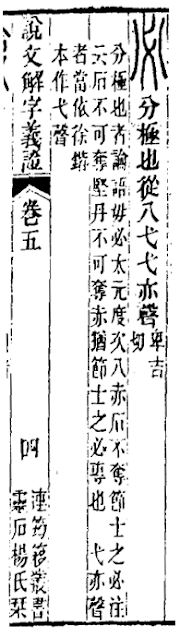 分極也從八弋弋亦聲卑吉切
分極也者論語毋必太元度次八赤石不奪節士之必注
云石不可奪堅丹不可奪赤猶節士之必專也 弋亦聲
者當依徐鍇
本作弋聲
說文解字義證
卷五
四
連筠簃叢書
靈石楊氏栞